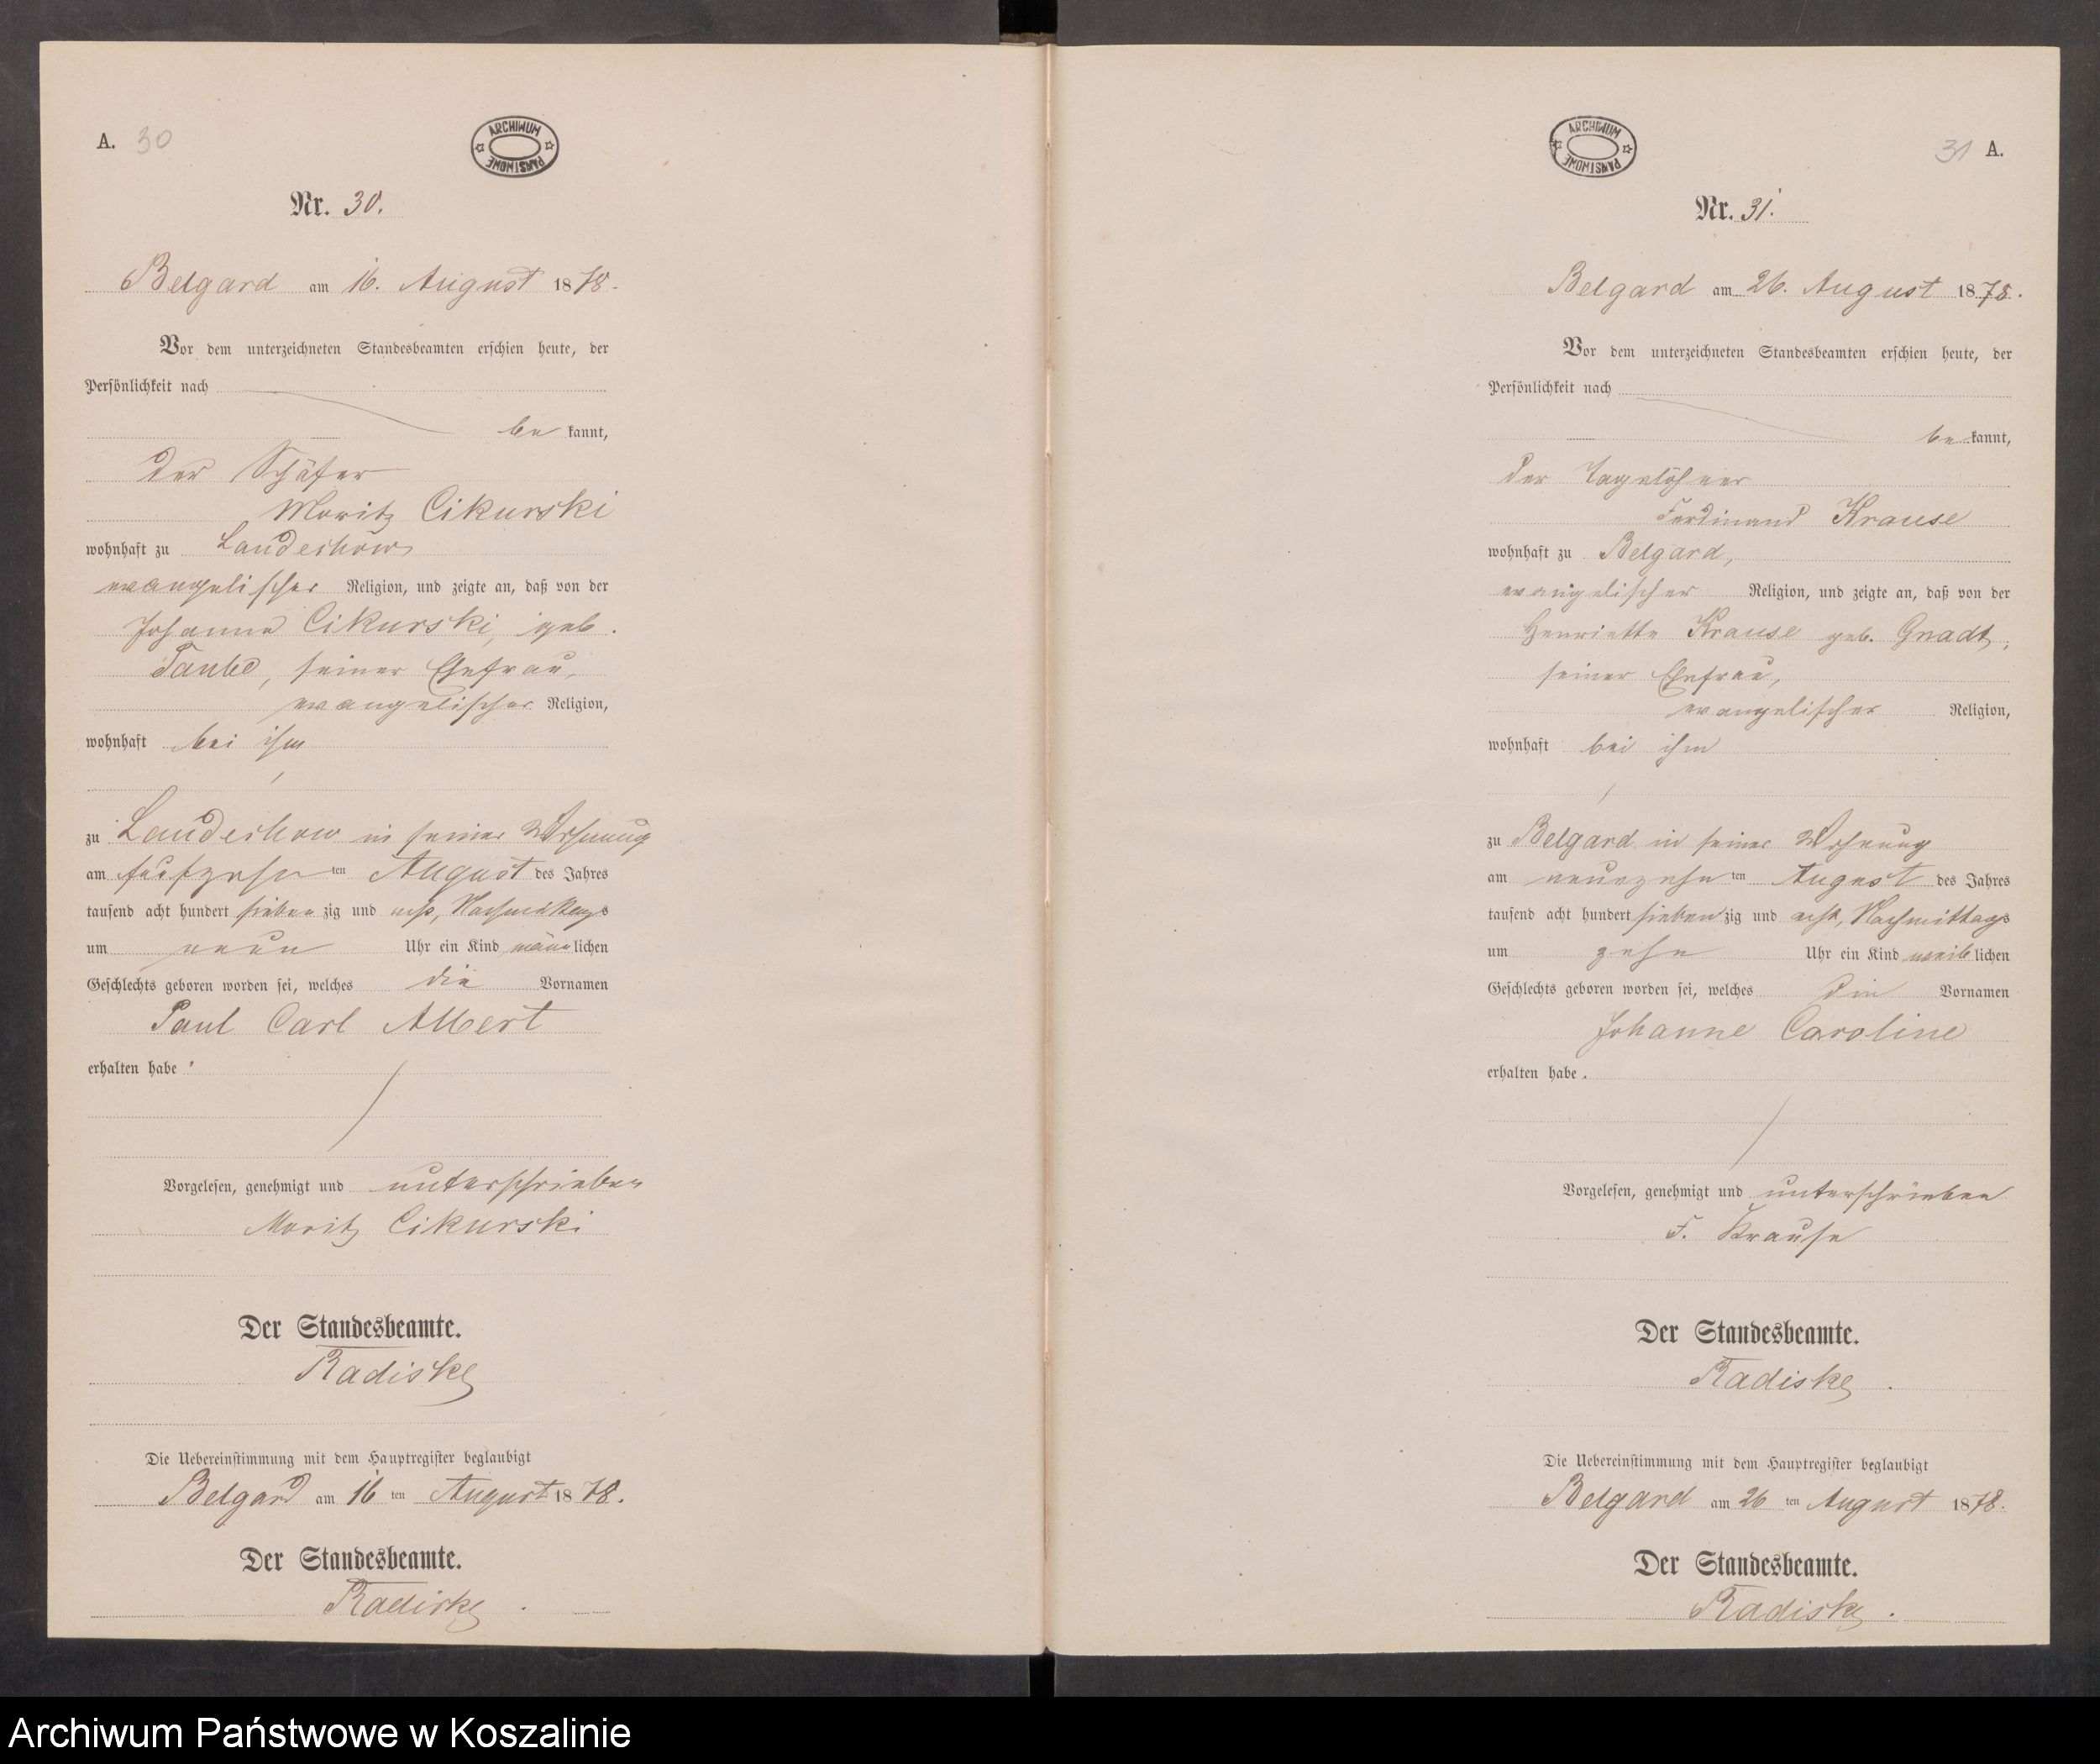 A. 30
ARCHIWUM PAŃSTWOWE
Nr. 30.
Belgard am 16. August 1878.
Vor dem unterzeichneten Standesbeamten erschien heute, der
Persönlichkeit nach
be kannt,
der Schäfer
Moritz Cikurski
wohnhaft zu Landechow
evangelischer Religion, und zeigte an, daß von der
Johanna Cikurski, geb.
Taube, seiner Ehefrau,
evangelischer Religion,
wohnhaft bei ihm
zu Landechow in seiner Wohnung
am fünfzehn ten August des Jahres
tausend acht hundert sieben zig und acht, Nachmittags
um neun Uhr ein Kind männ lichen
Geschlechts geboren worden sei, welches die Vornamen
Paul Carl Albert
erhalten habe.
Vorgelesen, genehmigt und unterschrieben
Moritz Cikurski
Der Standesbeamte.
Radiske
Die Uebereinstimmung mit dem Hauptregister beglaubigt
Belgard am 16 ten August 1878.
Der Standesbeamte.
Radiske.
31 A.
ARCHIWUM PAŃSTWOWE
Nr. 31.
Belgard am 26. August 1878.
Vor dem unterzeichneten Standesbeamten erschien heute, der
Persönlichkeit nach
be kannt,
der Tagelöhner
Ferdinand Krause
wohnhaft zu Belgard,
evangelischer Religion, und zeigte an, daß von der
Henriette Krause geb. Gnadt,
seiner Ehefrau,
evangelischer Religion,
wohnhaft bei ihm
zu Belgard in seiner Wohnung
am neunzehn ten August des Jahres
tausend acht hundert sieben zig und acht, Nachmittags
um zehn Uhr ein Kind weib lichen
Geschlechts geboren worden sei, welches die Vornamen
Johanne Caroline
erhalten habe.
Vorgelesen, genehmigt und unterschrieben
F. Krause
Der Standesbeamte.
Radiske.
Die Uebereinstimmung mit dem Hauptregister beglaubigt
Belgard am 26 ten August 1878.
Der Standesbeamte.
Radiske.
Archiwum Państwowe w Koszalinie